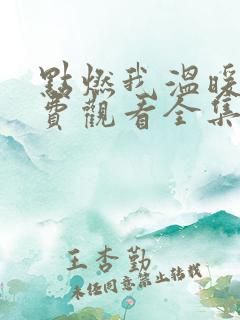 點燃我溫暖
費觀看全集
王杏勤
未经同意禁止转载